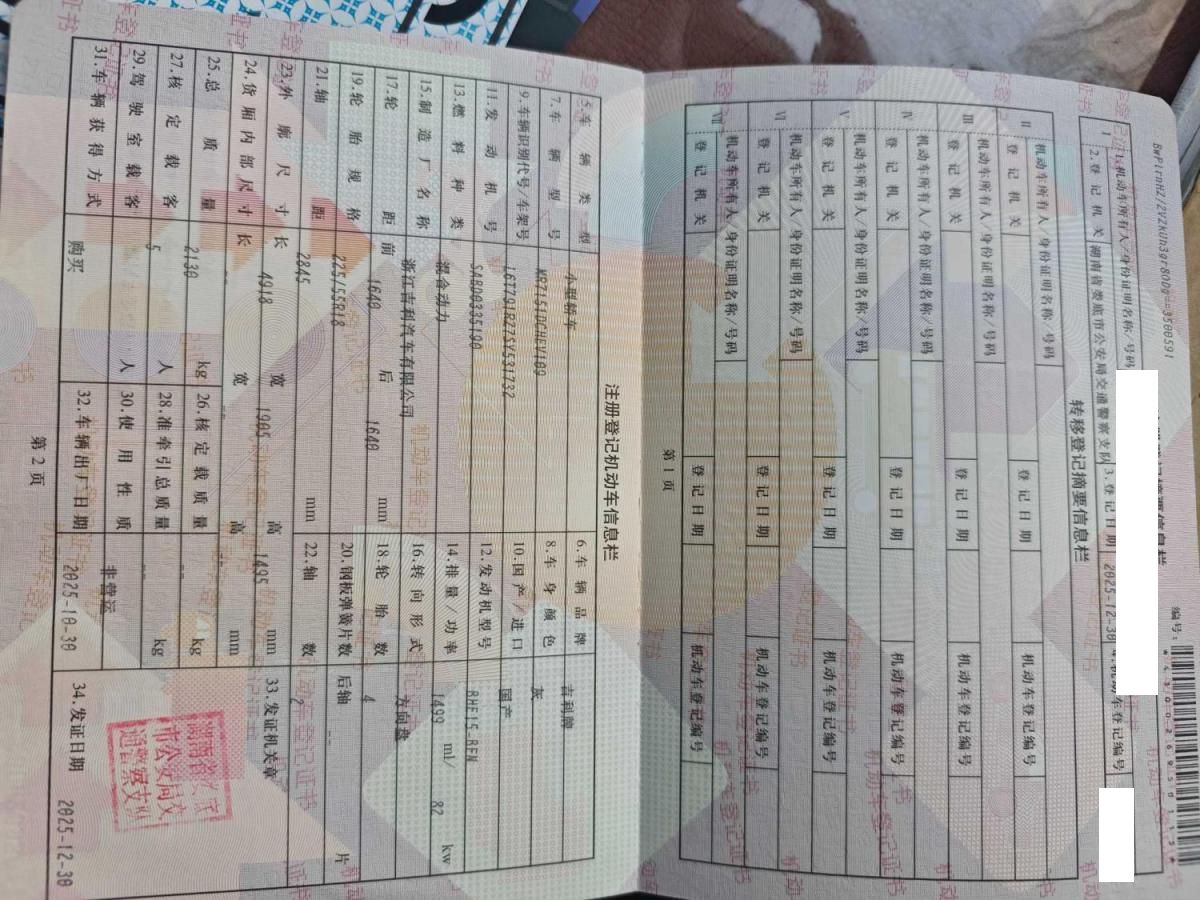 BwP1rnHZ/2VZkUh3gr80Dg==3500591
编号:
1.机动车所有人/身份证明名称/号码
2.登记机关 湖南省娄底市公安局交通警察支队 3.登记日期 2025-12-30 4.机动车登记编号
转移登记摘要信息栏
Ⅱ 机动车所有人/身份证明名称/号码
登记机关 登记日期 机动车登记编号
Ⅲ 机动车所有人/身份证明名称/号码
登记机关 登记日期 机动车登记编号
Ⅳ 机动车所有人/身份证明名称/号码
登记机关 登记日期 机动车登记编号
Ⅴ 机动车所有人/身份证明名称/号码
登记机关 登记日期 机动车登记编号
Ⅵ 机动车所有人/身份证明名称/号码
登记机关 登记日期 机动车登记编号
Ⅶ 机动车所有人/身份证明名称/号码
登记机关 登记日期 机动车登记编号
第1页
注册登记机动车信息栏
5.车辆类型 小型轿车 6.车辆品牌 吉利牌
7.车辆型号 MR7151DCHEV109 8.车身颜色 灰
9.车辆识别代号/车架号 L6T791R27SY531732 10.国产/进口 国产
11.发动机号 SABD0335190 12.发动机型号 BHE15-BFN
13.燃料种类 混合动力 14.排量/功率 1499 ml/ 82 kw
15.制造厂名称 浙江吉利汽车有限公司 16.转向形式 方向盘
17.轮距 前 1640 后 1640 mm 18.轮胎数 4
19.轮胎规格 225/55R18 20.钢板弹簧片数 后轴 片
21.轴距 2845 mm 22.轴数 2
23.外廓尺寸 长 4918 宽 1905 高 1495 mm 33.发证机关章
24.货厢内部尺寸 长 宽 高 mm
25.总质量 2130 kg 26.核定载质量 kg
27.核定载客 5 人 28.准牵引总质量 kg
29.驾驶室载客 人 30.使用性质 非营运
31.车辆获得方式 购买 32.车辆出厂日期 2025-10-30 34.发证日期 2025-12-30
湖南省娄底
市公安局交
通警察支队
第2页